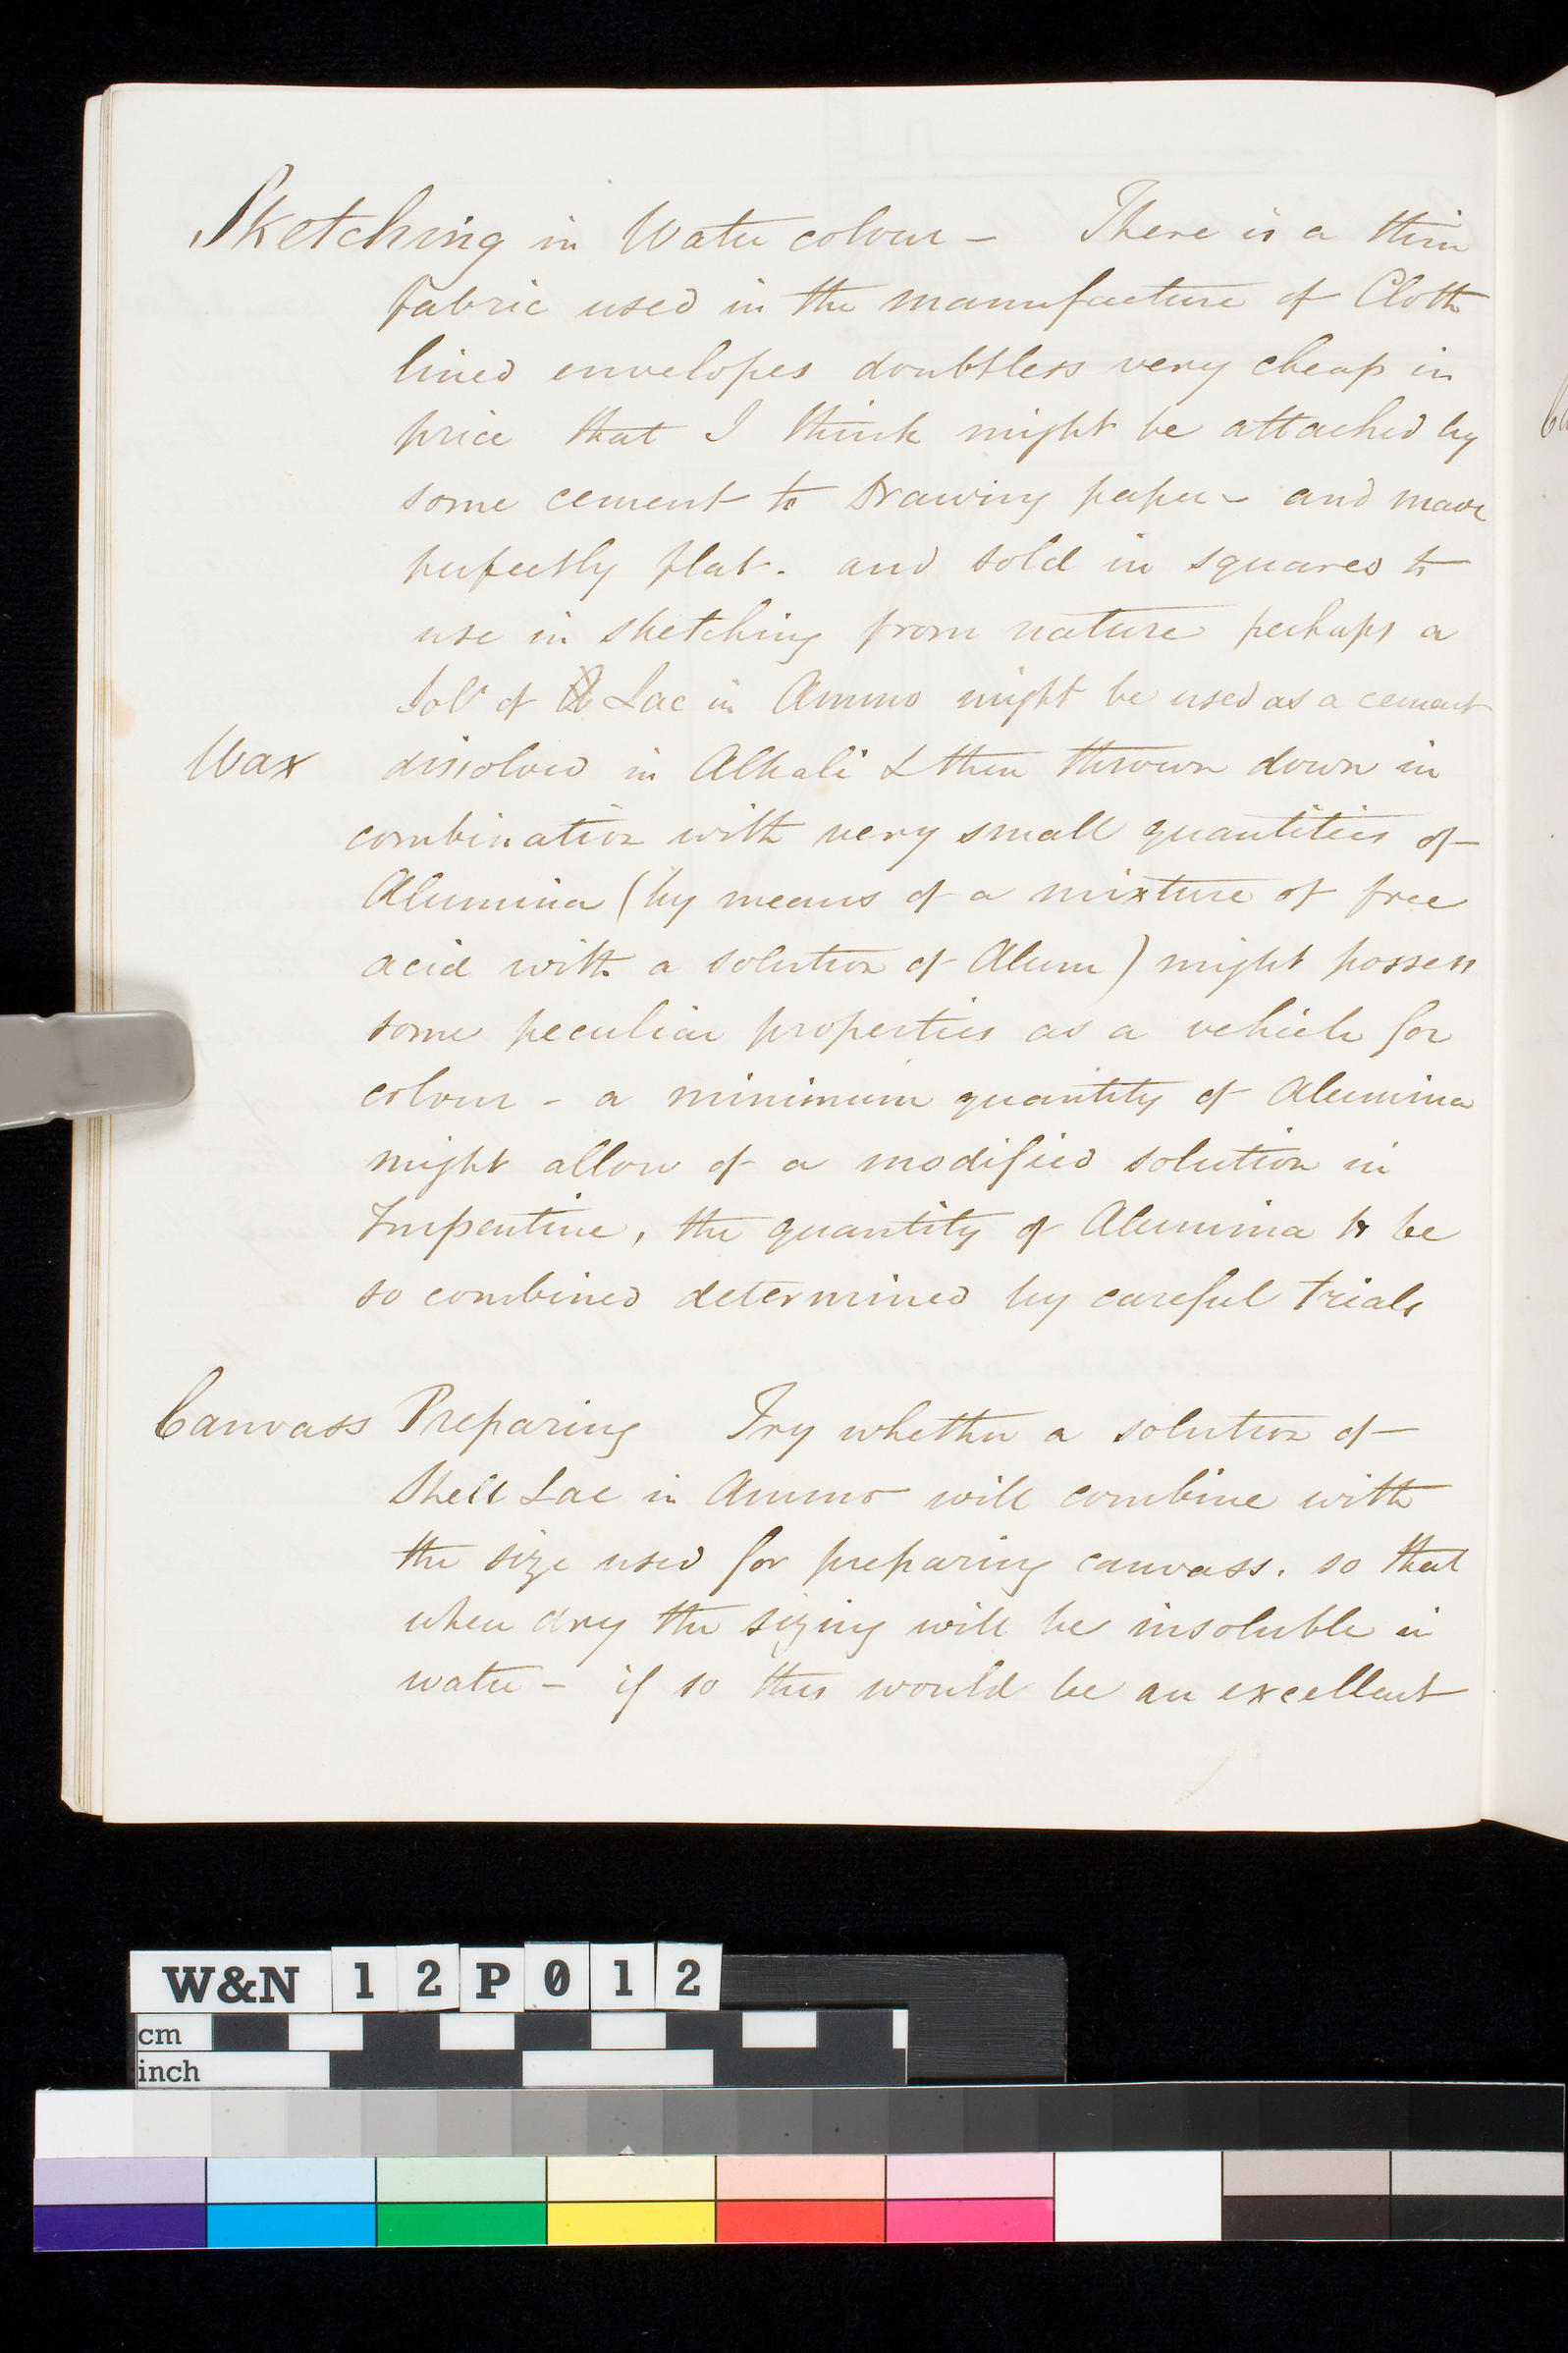 Sketching in Water colour – There is a thin
fabric used in the manufacture of Cloth
lined envelopes doubtless very cheap in
price that I think might be attached by
some cement to Drawing paper – and made
perfectly flat. and sold in squares to
use in sketching from nature perhaps a
Solⁿ of Lac in Ammo might be used as a cement
Wax dissolved in Alkali & then thrown down in
combination with very small quantities of
Alumina (by means of a mixture of free
acid with a solution of Alum) might possess
some peculiar properties as a vehicle for
colour – a minimum quantity of Alumina
might allow of a modified solution in
Turpentine, the quantity of Alumina to be
so combined determined by careful trials
Canvass Preparing Try whether a solution of
Shell Lac in Ammo will combine with
the size used for preparing canvass. so that
when dry the sizing will be insoluble in
water – if so this would be an excellent
W&N 12P012
cm
inch